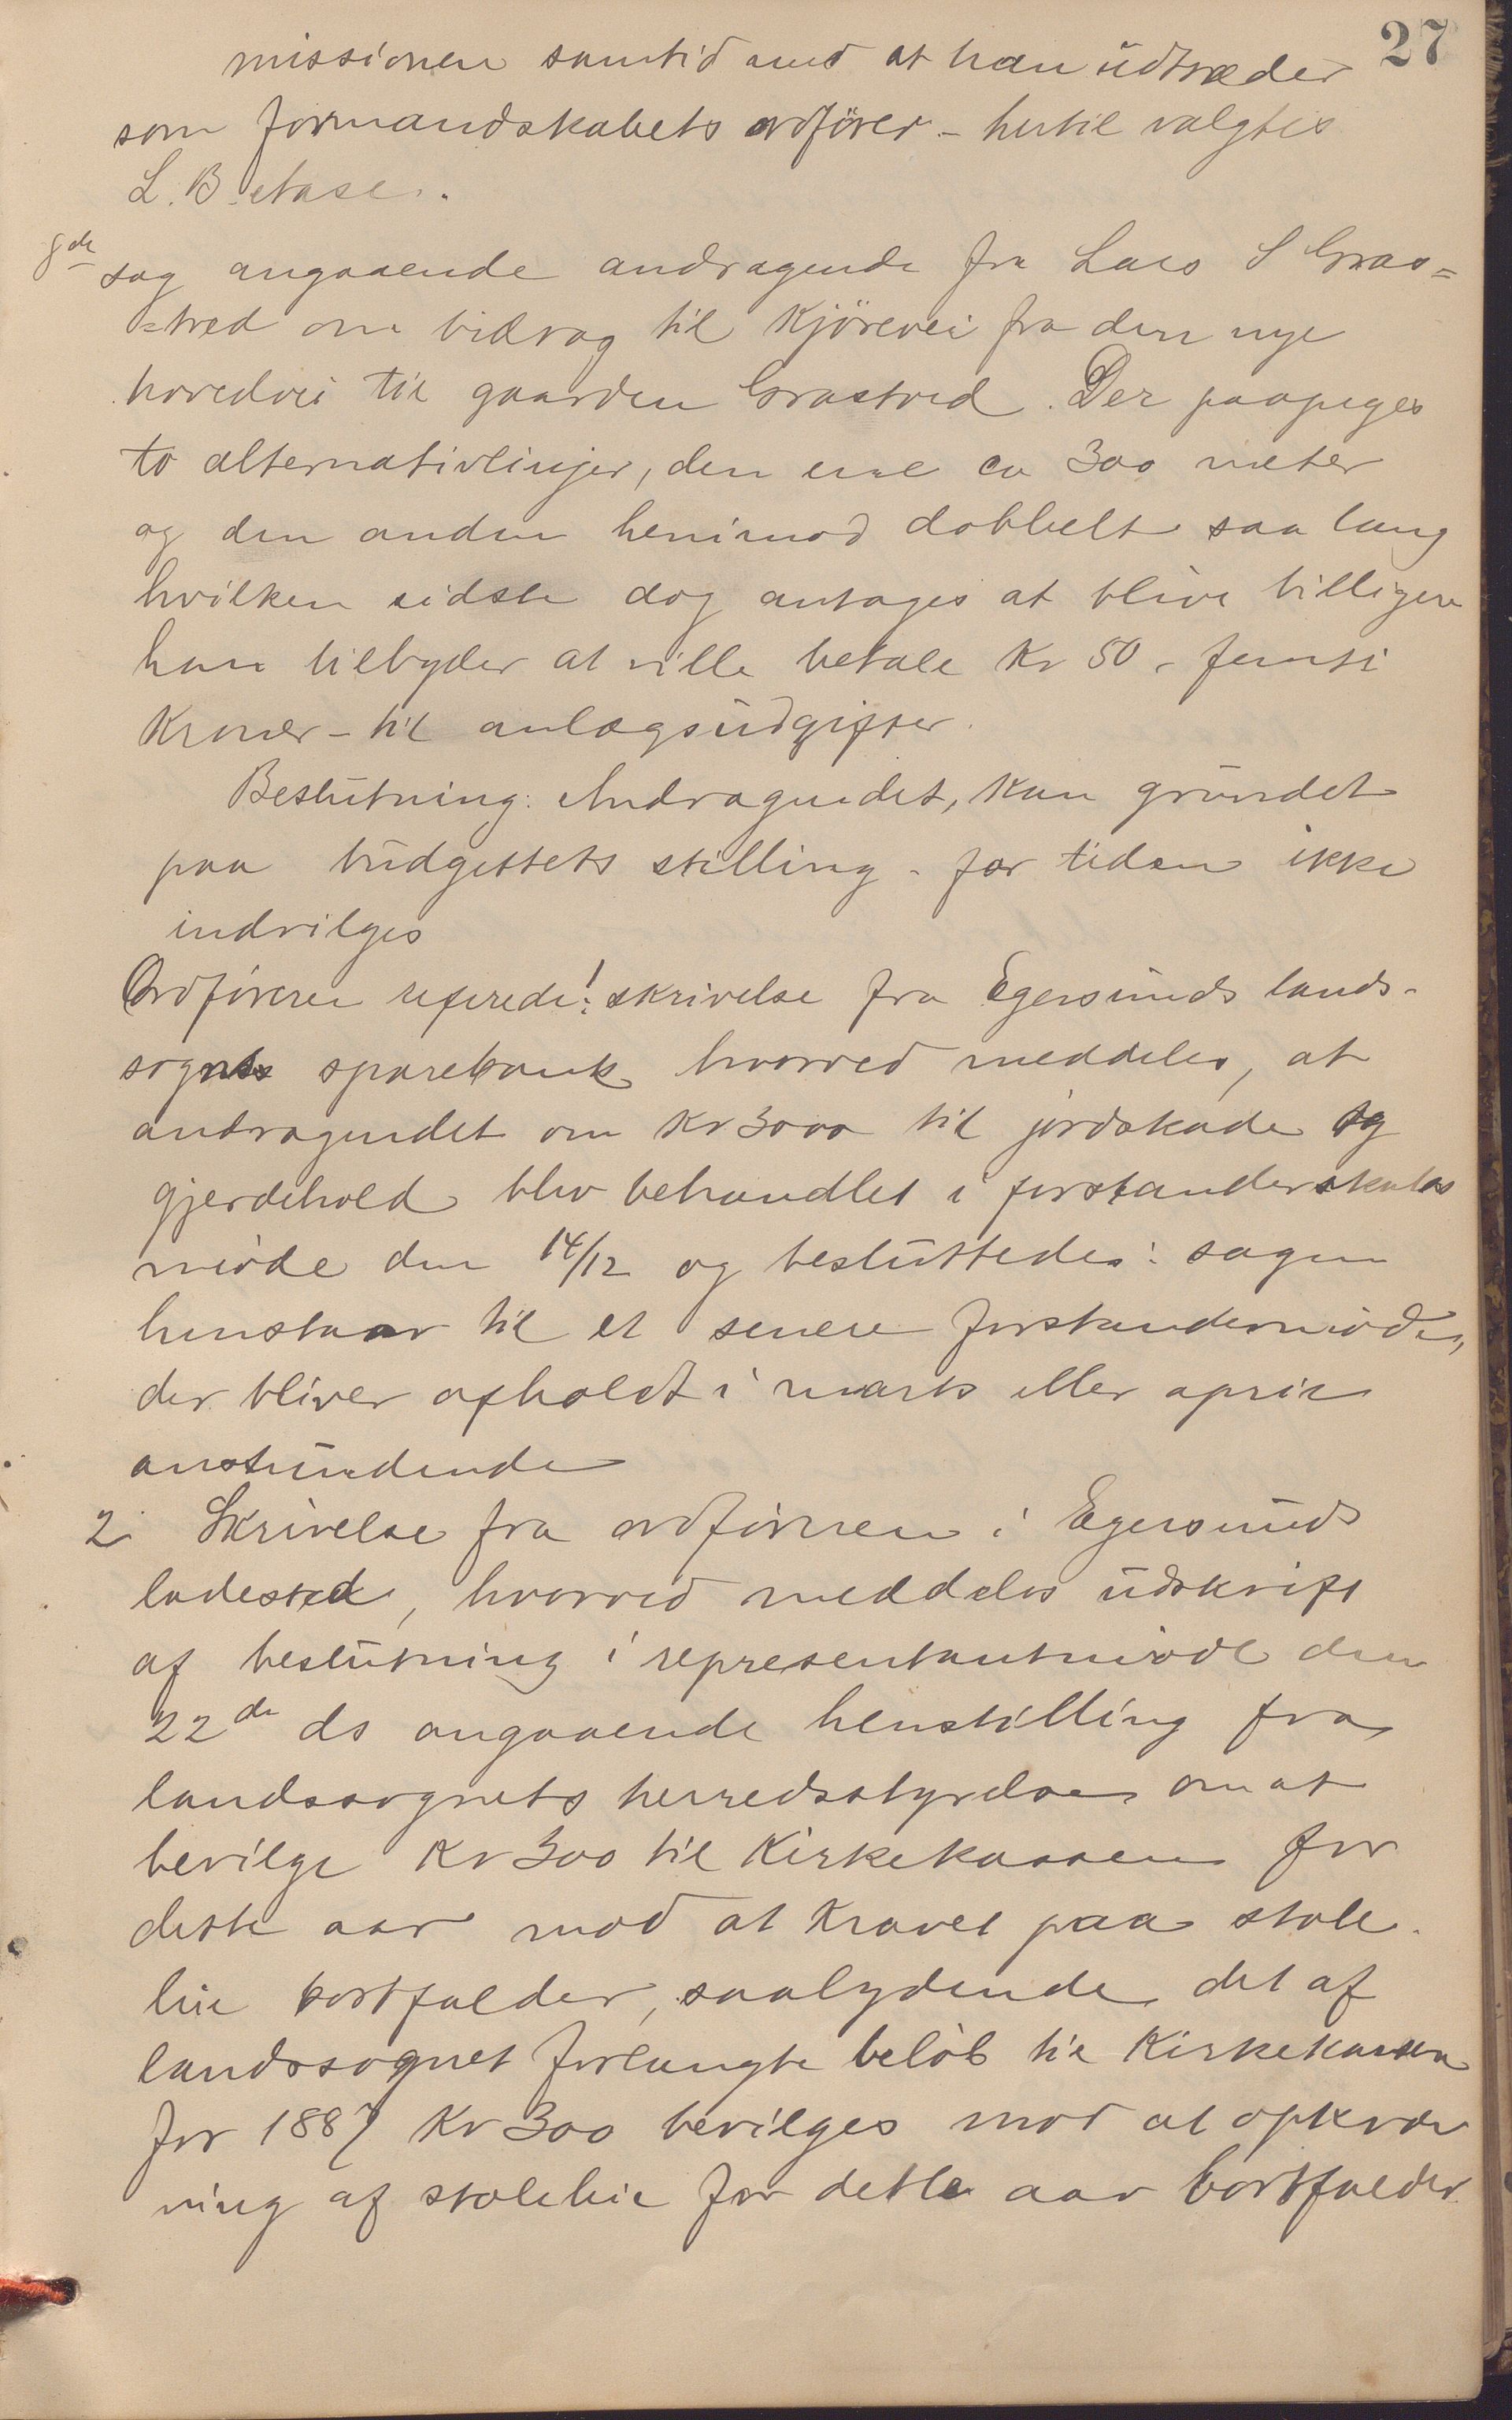 27
missionen samtid med at han üdtræder
som formandskabets ordfører - hertil valgtes
L. B.
8de sag angaaende andragende fra Lars S Gras=
=tved om bidrag til Kjörevei fra den nye
hovedvei til gaarden Grastved. Der paapeges
to alternativlinjer, den ene ca 300 meter
og den anden henimod dobbelt saa lang
hvilken sidste dog antages at blive billigere
han tilbyder at ville betale Kr 50 - femti
Kroner - til anlægsüdgifter.
Beslütning: Andragendet, kan gründet
paa büdgettets stilling - for tiden ikke
indvilges
Ordføreren refererede: 1 skrivelse fra Egersünds lands-
sogns sparebank hvorved meddeles, at
andragendet om Kr 3000 til jordskade og
gjerdehold blev behandlet i forstanderskabs
møde den 14/12 og beslüttedes: sagen
henstaar til et senere forstandermøde,
der bliver afholdt i marts eller april
anstündende
2 Skrivelse fra ordføreren i Egersünds
ladested, hvorved meddeles üdskrift
af beslütning i representantmøde den
22de ds angaaende henstilling fra
landssognets herredsstyrelse om at
bevilge Kr 300 til Kirkekassen for
dette aar mod at Kravet paa stole-
leie bortfalder, saalydende det af
landssognet forlangte beløb til Kirkekassen
for 1887 Kr 300 bevilges mod at opkræv
ning af stoleleie for dette aar bortfalder.